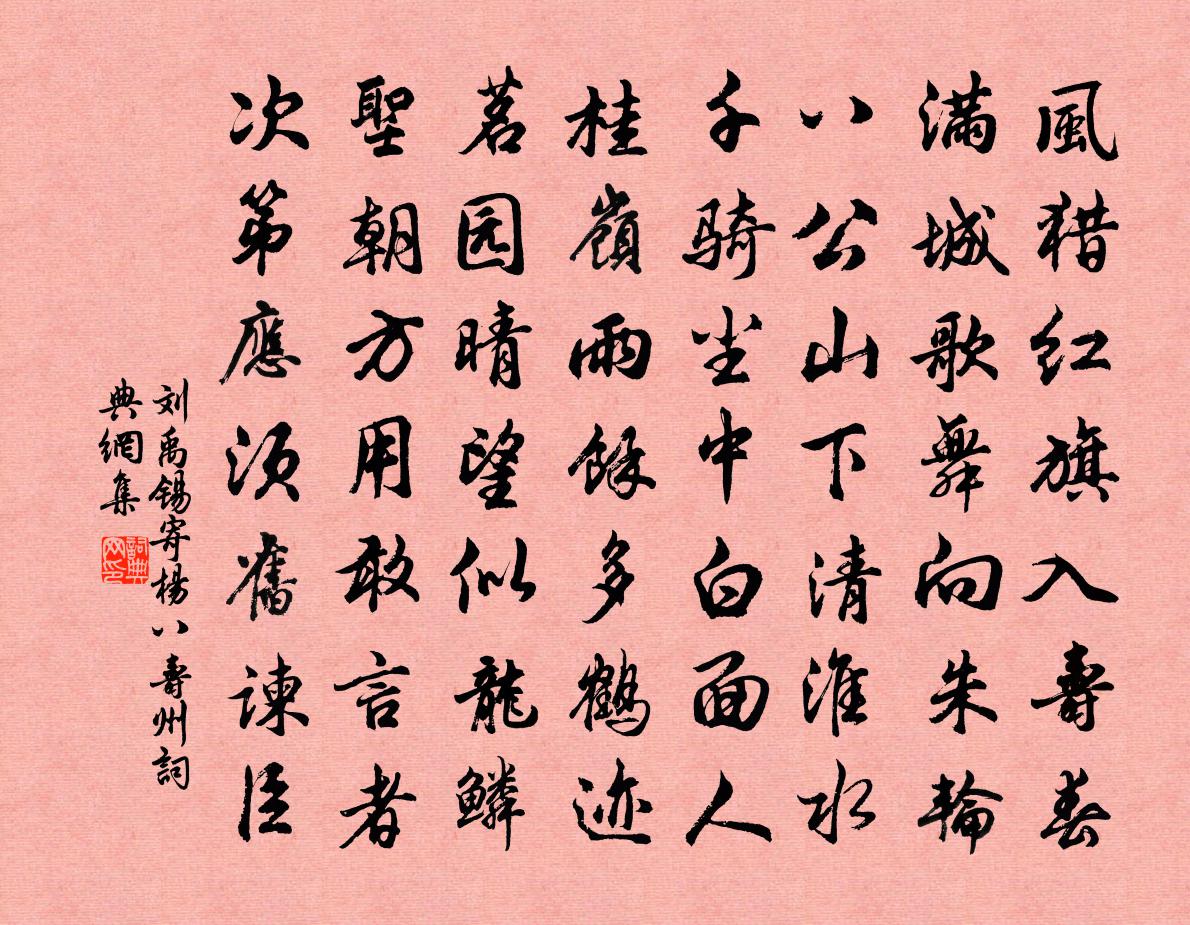 風猎红旗入壽春
满城歌舞向朱輪
八公山下清淮水
千骑尘中白面人
桂嶺雨餘多鶴迹
茗园晴望似龍鱗
聖朝方用敢言者
次第應须舊諫臣
刘禹锡寄楊八壽州詞
典網集
詞典
网印